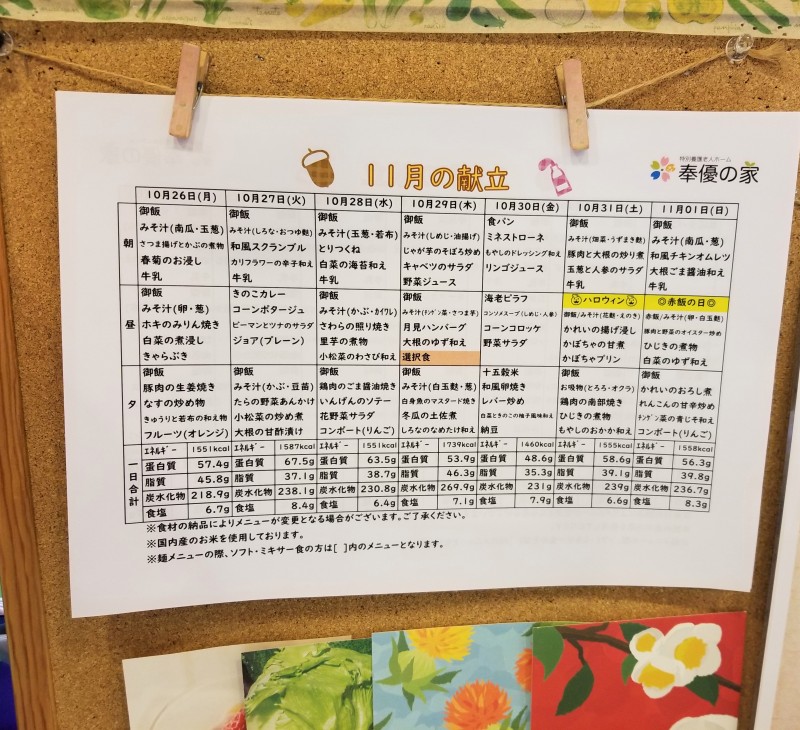 11月の献立
特別養護老人ホーム
奉優の家
10月26日(月) 10月27日(火) 10月28日(水) 10月29日(木) 10月30日(金) 10月31日(土) 11月01日(日)
朝
御飯 御飯 御飯 御飯 食パン 御飯 御飯
みそ汁(南瓜・玉葱) みそ汁(しろな・おつゆ麩) みそ汁(玉葱・若布) みそ汁(しめじ・油揚げ) ミネストローネ みそ汁(畑菜・うずまき麩) みそ汁(南瓜・葱)
さつま揚げとかぶの煮物 和風スクランブル とりつくね じゃが芋のそぼろ炒め もやしのドレッシング和え 豚肉と大根の炒り煮 和風チキンオムレツ
春菊のお浸し カリフラワーの辛子和え 白菜の海苔和え キャベツのサラダ リンゴジュース 玉葱と人参のサラダ 大根ごま醤油和え
牛乳 牛乳 牛乳 野菜ジュース 牛乳 牛乳
昼
御飯 きのこカレー 御飯 御飯 海老ピラフ ハロウィン ◎赤飯の日◎
みそ汁(卵・葱) コーンポタージュ みそ汁(かぶ・カイワレ) みそ汁(チンゲン菜・さつま芋) コンソメスープ(しめじ・人参) 御飯/みそ汁(花麩・えのき) 赤飯/みそ汁(卵・白玉麩)
ホキのみりん焼き ピーマンとツナのサラダ さわらの照り焼き 月見ハンバーグ コーンコロッケ かれいの揚げ浸し 豚肉と野菜のオイスター炒め
白菜の煮浸し ジョア(プレーン) 里芋の煮物 大根のゆず和え 野菜サラダ かぼちゃの甘煮 ひじきの煮物
きゃらぶき 小松菜のわさび和え 選択食 かぼちゃプリン 白菜のゆず和え
夕
御飯 御飯 御飯 御飯 十五穀米 御飯 御飯
豚肉の生姜焼き みそ汁(かぶ・豆苗) 鶏肉のごま醤油焼き みそ汁(白玉麩・葱) 和風卵焼き お吸物(とろろ・オクラ) かれいのおろし煮
なすの炒め物 たらの野菜あんかけ いんげんのソテー 白身魚のマスタード焼き レバー炒め 鶏肉の南部焼き れんこんの甘辛炒め
きゅうりと若布の和え物 小松菜の炒め煮 花野菜サラダ 冬瓜の土佐煮 白菜ときのこの柚子風味和え ひじきの煮物 チンゲン菜の青じそ和え
フルーツ(オレンジ) 大根の甘酢漬け コンポート(りんご) しろなのなめたけ和え 納豆 もやしのおかか和え コンポート(りんご)
一日合計
エネルギー 1551kcal エネルギー 1587kcal エネルギー 1551kcal エネルギー 1739kcal エネルギー 1460kcal エネルギー 1555kcal エネルギー 1558kcal
蛋白質 57.4g 蛋白質 67.5g 蛋白質 63.5g 蛋白質 53.9g 蛋白質 48.6g 蛋白質 58.6g 蛋白質 56.3g
脂質 45.8g 脂質 37.1g 脂質 38.7g 脂質 46.3g 脂質 35.3g 脂質 39.1g 脂質 39.8g
炭水化物 218.9g 炭水化物 238.1g 炭水化物 230.8g 炭水化物 269.9g 炭水化物 231g 炭水化物 239g 炭水化物 236.7g
食塩 6.7g 食塩 8.4g 食塩 6.4g 食塩 7.1g 食塩 7.9g 食塩 6.6g 食塩 8.3g
※食材の納品によりメニューが変更となる場合がございます。ご了承ください。
※国内産のお米を使用しております。
※麺メニューの際、ソフト・ミキサー食の方は[ ]内のメニューとなります。